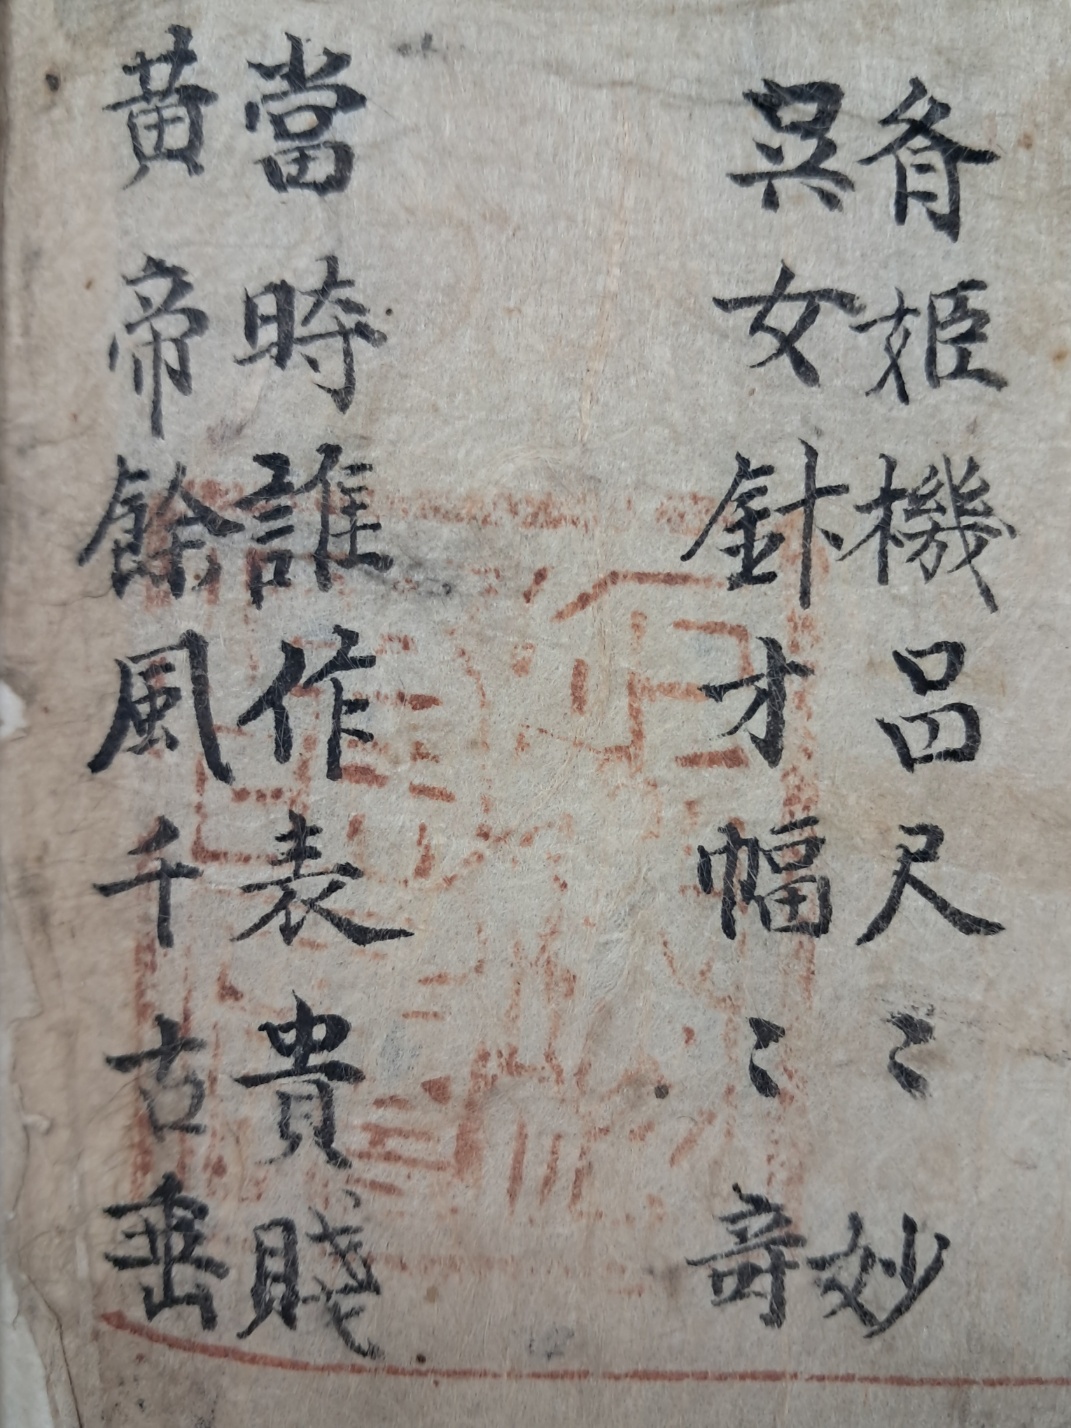 齊姬機品尺〻妙
吳女針才幅〻奇
當時誰作表貴賤
黃帝餘風千古垂